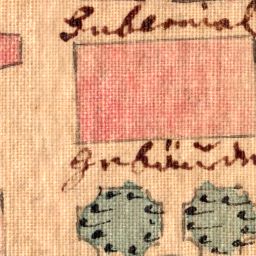 Gubernial
gebäude